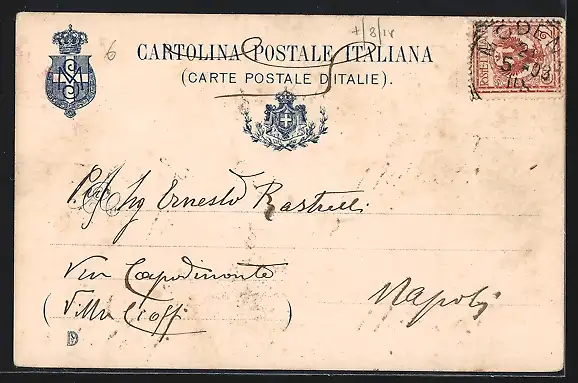 6
CARTOLINA POSTALE ITALIANA
(CARTE POSTALE D'ITALIE).
MODEN
2
5 - 03
Ernesto Rastrelli
Via Capodimonte
(Villa Cioffi)
Napoli